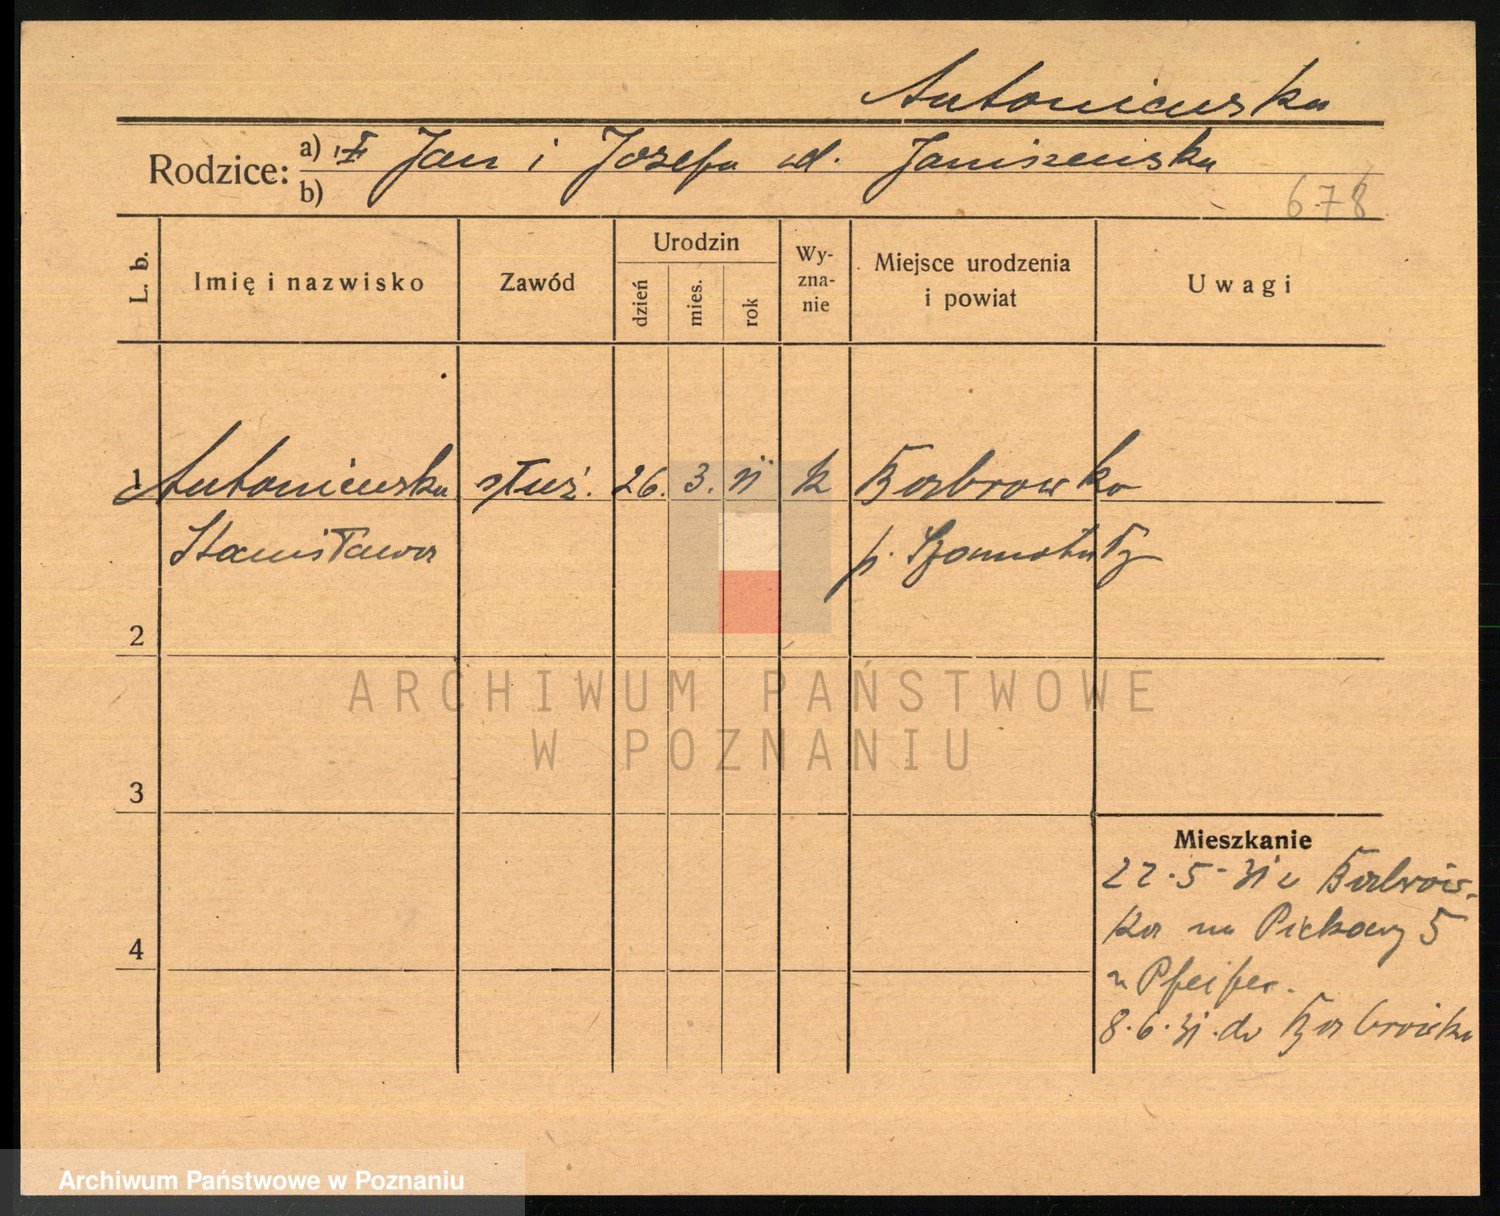 Antoniewska
Rodzice: a) Jan i Józefa ud. Janiszewska
b)
678
L. b.
Imię i nazwisko
Zawód
Urodzin
dzień
mies.
rok
Wy-
zna-
nie
Miejsce urodzenia
i powiat
Uwagi
1 Antoniewska służ. 26. 3. 11 k Baborowko
Stanisława p. Szamotuły
2
ARCHIWUM PAŃSTWOWE
W POZNANIU
3
Mieszkanie
22.5.31 z
ka na Piekary 5
4
u Pfeifer.
8.6.31. do
Archiwum Państwowe w Poznaniu